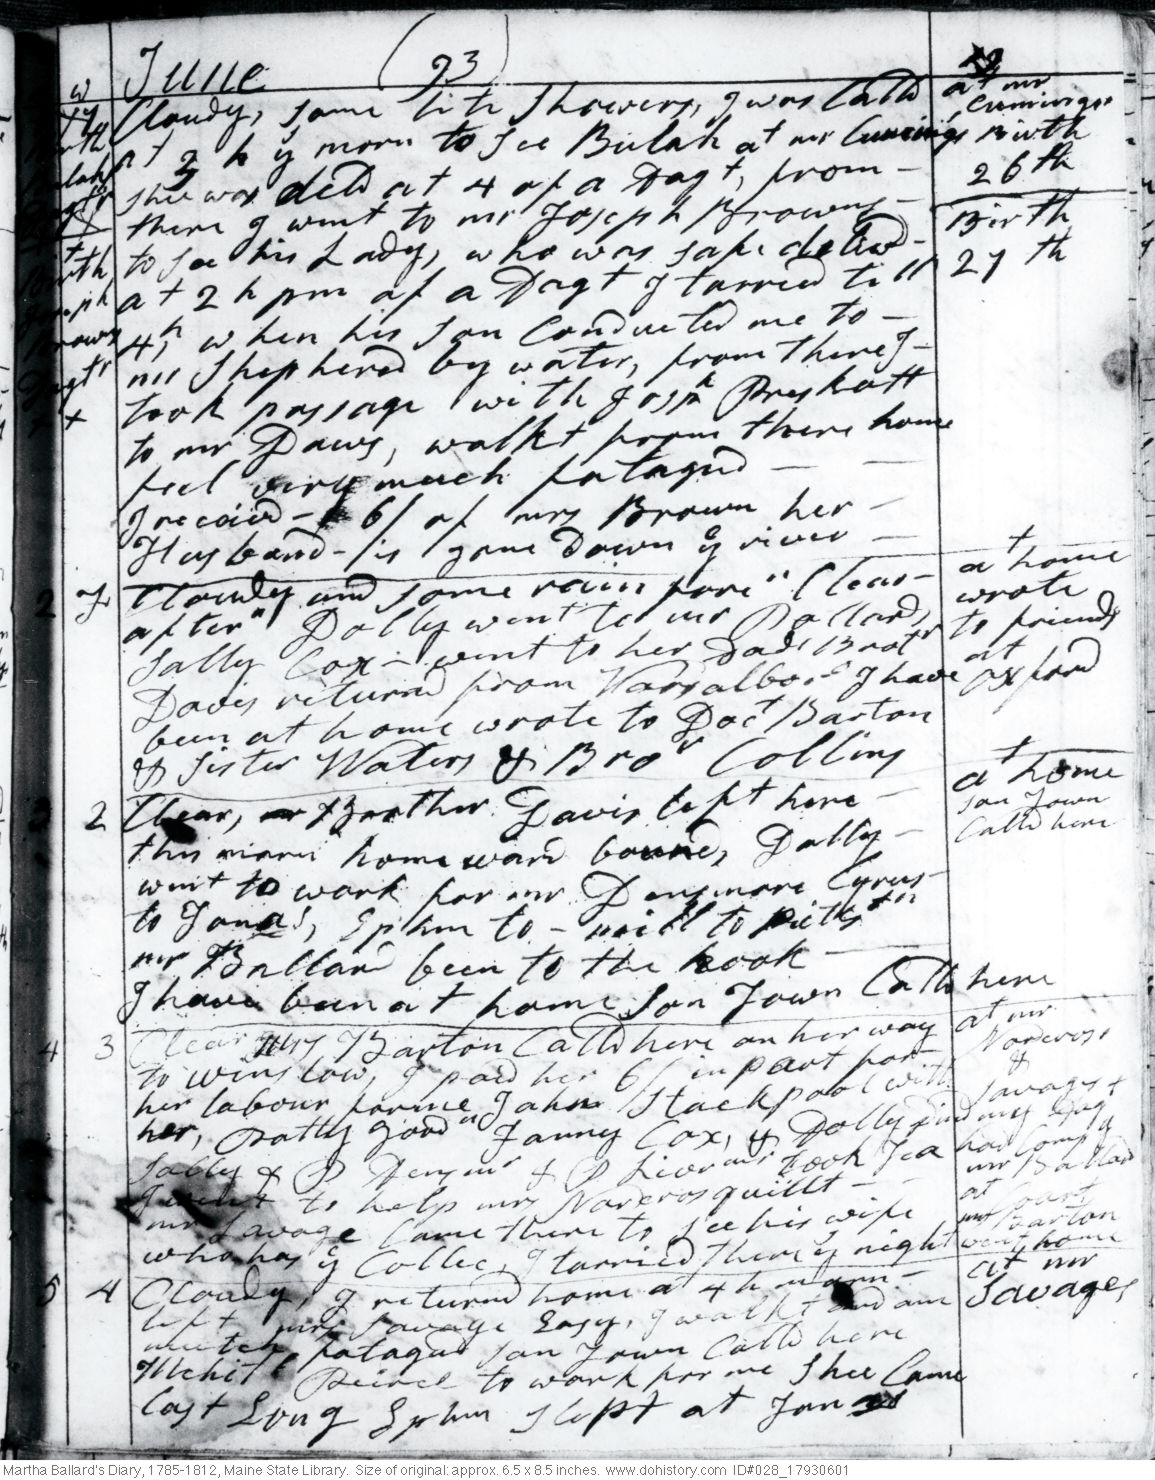 June (93)
Cloudy, some litle Showers, I was Calld
at 2 h y morn to See Bulah at mr Cumings
shee was deld at 4 of a Dagt, from -
there I went to mr Joseph Browns -
to See his Lady, who was safe delivd -
at 2 h pm of a Dagt I tarried till
4 h, when his Son Conducted me to -
mr Shepherd by water, from there I -
took passage with Josph Preskott
to mr Daws, walkt from there home
feel very much fatagud -
I receivd - 6/ of mrs Brown her -
Husband - is gone Down y river -
at mr
Cumings.
Birth
26th
Birth
27th
Birth
Joseph
Browns
Dagtr
x x
2 Cloudy and some rain fore" Clear -
after" Dolly went to mr Pollard,
Sally Cox - went to her Dads Brotr
Davis returnd from Vassalboro I have
been at home wrote to Doct Barton
& Sister Waters & Bror Collins
at home
wrote
to friends
at
oxford
3 2 Clear, Brother Davis left here -
this morn homeward bound, Dolly -
went to work for mr Densmore Cyrus -
to Jonas, Ephm to - mill to Pitts"
mr Ballard been to the hook -
I have been at home Son Town Calld here
at home
Son Town
Calld here
4 3 Clear mrs Barton Calld here on her way
to winslow, I paid her 6/ in part for -
her labour for me John Stackpool with
her, Polly Good" Fanny Cox, & Dolly and my Dagt
Sally & P Densmr & P Livermr took Tea
I went to help mrs Norcros quillt -
mr Savage Came there to See his wife
who has y Collec, I tarried there y night
at mr
Norcros.
&
Savages +
had Comp y
mr Ballard
at
Court
mrs Barton
went home
5 4 Cloudy, I returnd home at 4 h morn -
left mrs Savage Easy, I walkt and am
mutch fatagud Son Town Calld here
Mehitl Peirce to work for me Shee Came
last Evng Ephm Slept at Jonas
at mr
Savages
Martha Ballard's Diary, 1785-1812, Maine State Library. Size of original: approx. 6.5 x 8.5 inches. www.dohistory.com ID#028_17930601